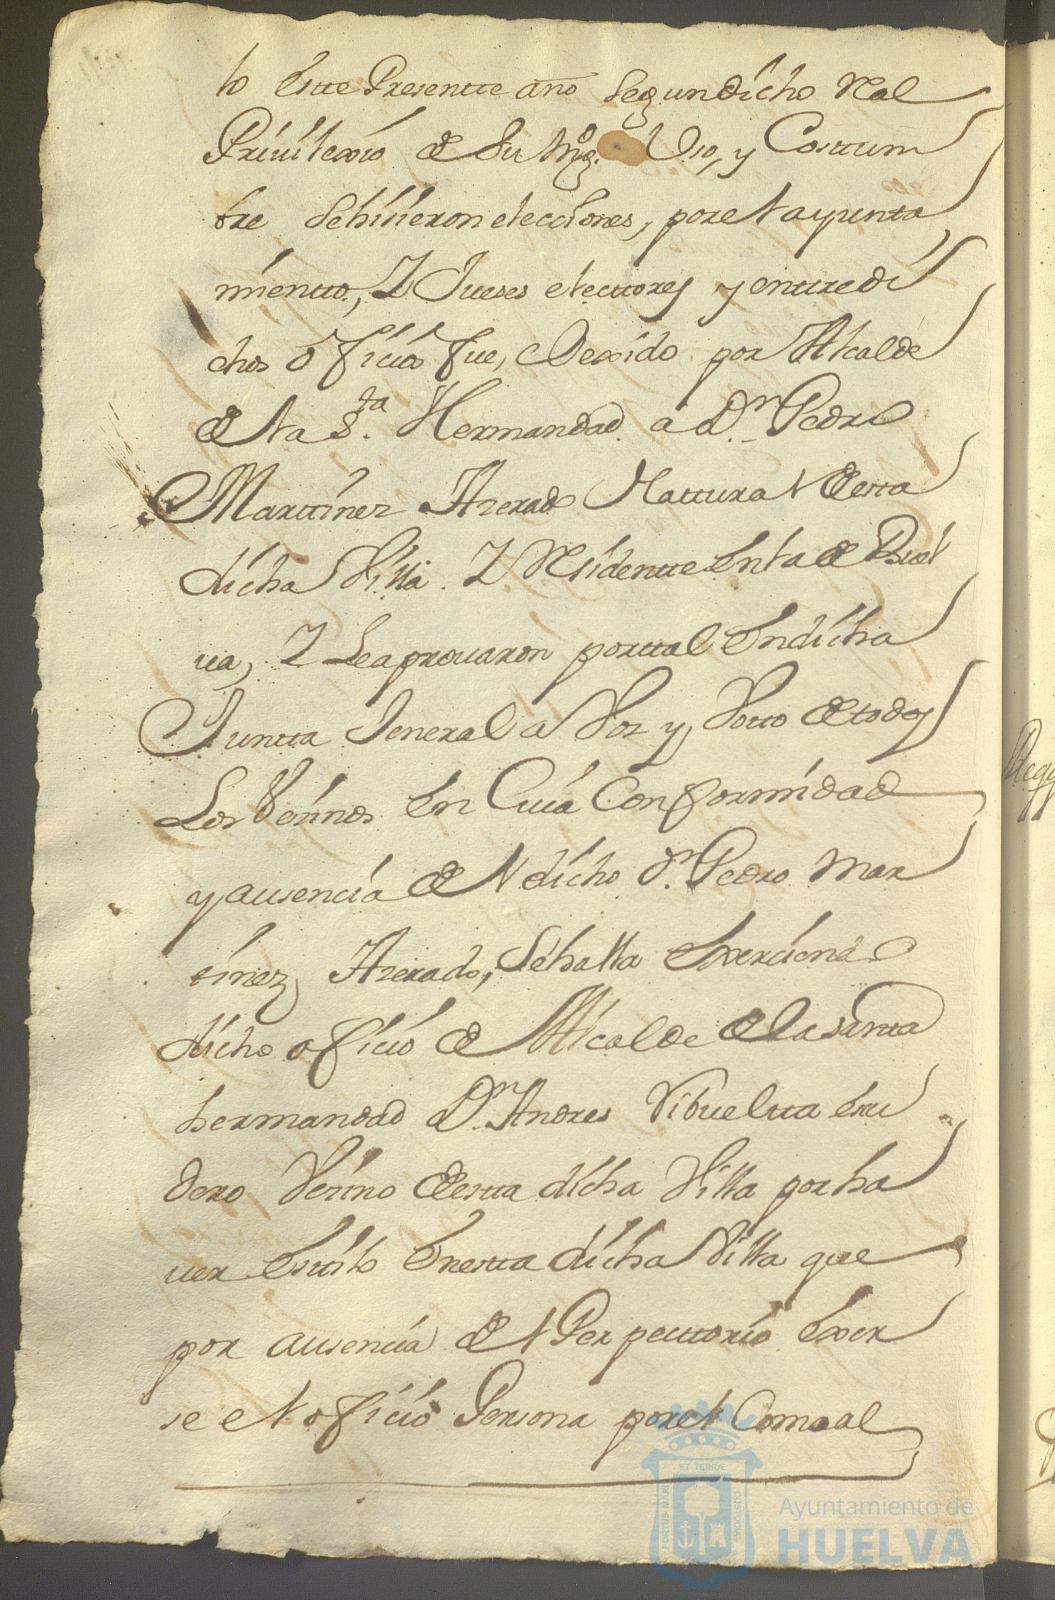 to este Presentte año segun dicho Real
Priuilexio de Su Mgd. Uso, y Costtum
bre Sehisieron elecciones, por el ayunta
miento, Y Jueses electtores y enttre di
chos oficios fue, elexido por Alcalde
de la Sta. Hermandad a Dn. Pedro
Marttinez Azerado Nattural desta
dicha Villa Y Residentte en la de Buel
ua, Y Le aprouaron por ttal En dicha
Juntta Jeneral a Voz y Votto de todos
Los Vesinos En Cuia Conformidad
y ausencia del dicho Dn. Pedro Mar
tinez Azerado, Sehalla Exersiendo
dicho oficio de Alcalde de la santa
hermandad Dn. Andres Vibueltta Escu
dero Vesino desta dicha Villa por ha
uer Estilo En estta dicha Villa que
por ausencia del Perpecttorio Exer
se el oficio Persona por el Comcal
ET TERRÆ
CUSTODIA
PORTUS MARIS
Ayuntamiento de
HUELVA